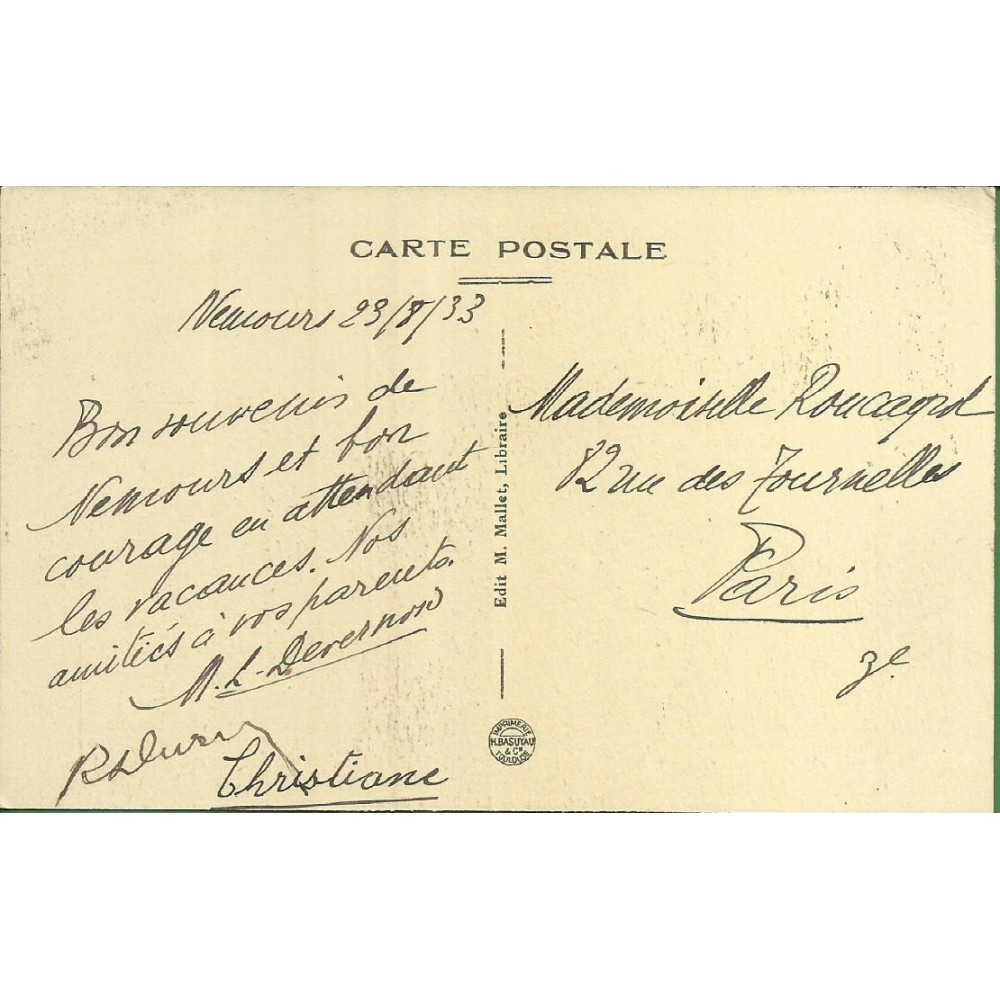 CARTE POSTALE
Nemours 23/8/33
Bon souvenir de
Nemours et bon
courage en attendant
les vacances. Nos
amitiés à vos parents.
M. L. Devernon
Christiane
Edit M. Mallet, Libraire
Mademoiselle Roucayrol
82 rue des Tournelles
Paris
3e
IMPRIMERIE
H. BASUYAU
& Cie
TOULOUSE